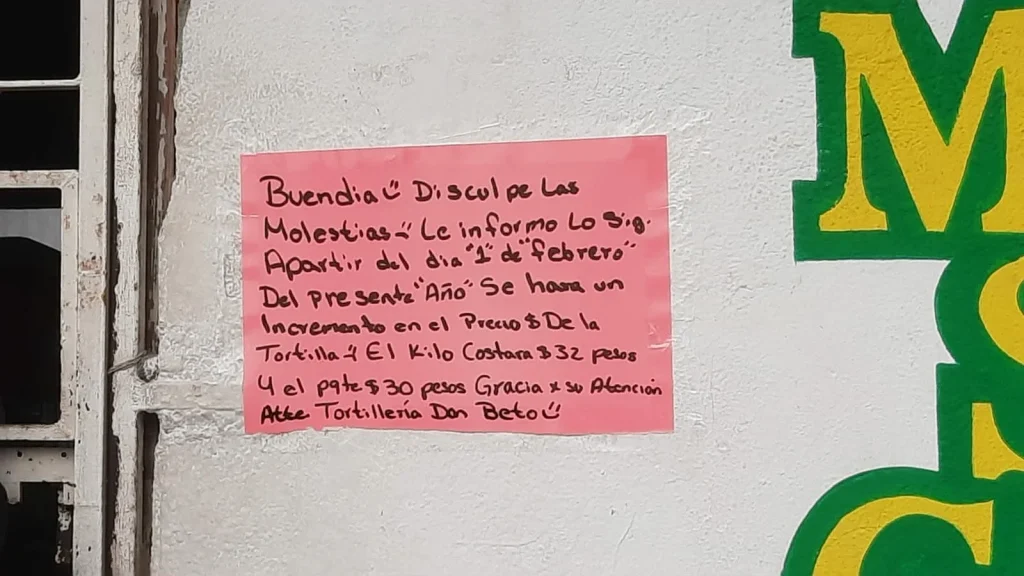 Buendia Disculpe Las
Molestias Le informo Lo Sig.
Apartir del dia "1" de "febrero"
Del presente "Año" Se hara un
Incremento en el Precio $ De la
Tortilla El Kilo Costara $32 pesos
y el pqte $30 pesos Gracia x su Atención
Atte Tortillería Don Beto
M
S
C